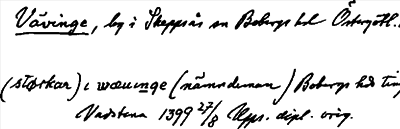 Vävinge, by i Skeppsås sn Bobergs hd Östergötl.
(størkar) i wæuinge (nämndeman) Bobergs hds ting
Vadstena 1399 27/8 Upps. dipl. orig.